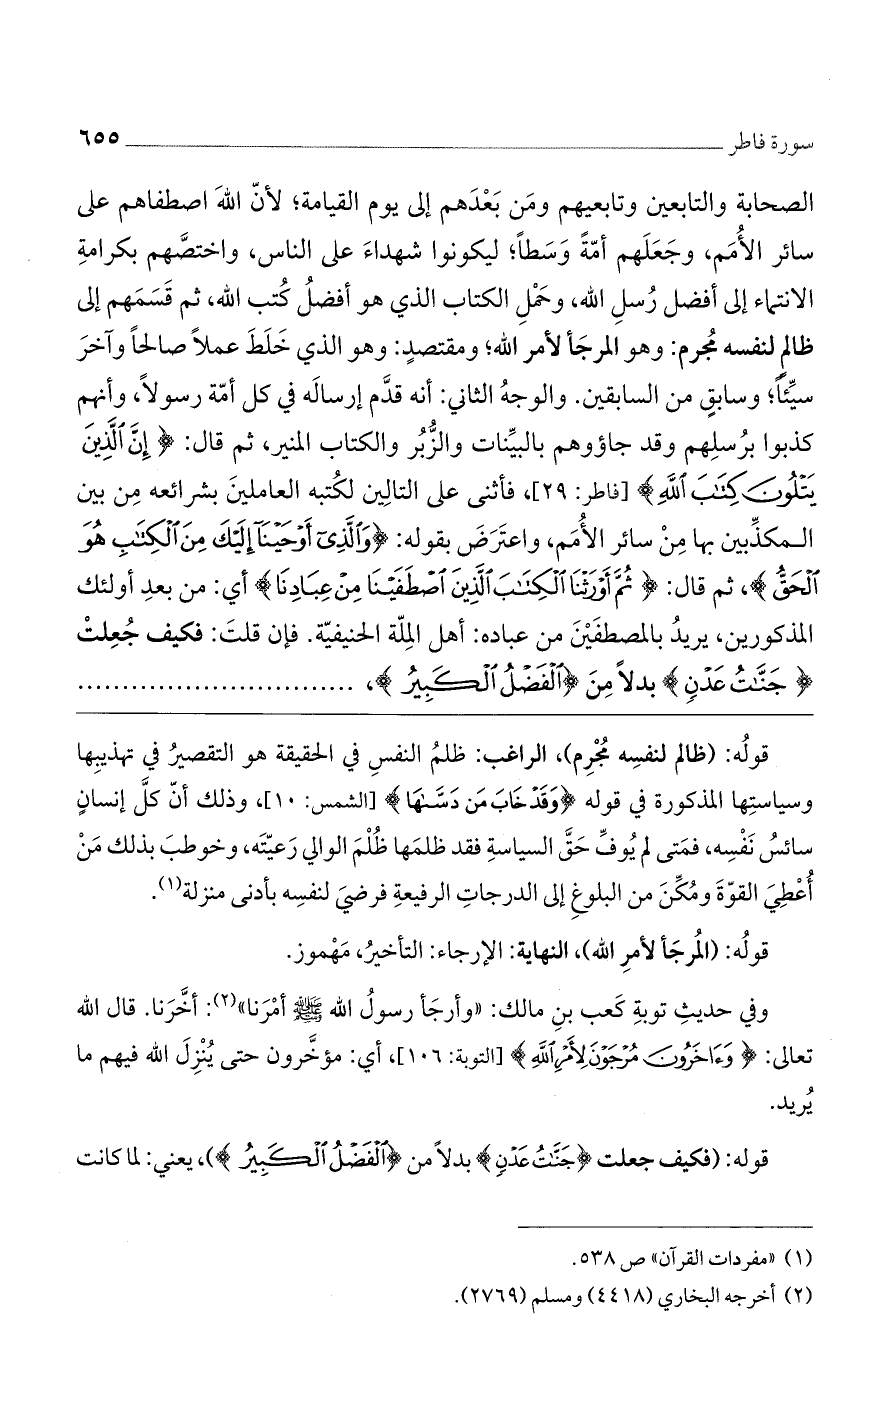 سورة فاطر ٦٥٥
الصحابة والتابعين وتابعيهم ومَن بَعْدَهم إلى يوم القيامة؛ لأنّ اللهَ اصطفاهم على
سائر الأُمَم، وجَعَلَهم أمّةً وَسَطاً؛ ليكونوا شهداءَ على الناس، واختصَّهم بكرامةِ
الانتماء إلى أفضل رُسلِ الله، وحَمْلِ الكتاب الذي هو أفضلُ كُتب الله، ثم قَسَمَهم إلى
ظالمٍ لنفسه مُجرم: وهو المرجَأ لأمر الله؛ ومقتصدٍ: وهو الذي خَلَطَ عملاً صالحاً وآخرَ
سيِّئاً؛ وسابقٍ من السابقين. والوجهُ الثاني: أنه قدَّم إرسالَه في كل أمّة رسولاً، وأنهم
كذبوا برُسلِهم وقد جاؤوهم بالبيِّنات والزُّبُر والكتاب المنير، ثم قال: ﴿إِنَّ ٱلَّذِينَ
يَتْلُونَ كِتَٰبَ ٱللَّهِ﴾ [فاطر: ٢٩]، فأثنى على التالِين لكُتبه العاملينَ بشرائعه مِن بين
المكذِّبين بها مِنْ سائر الأُمَم، واعترَضَ بقوله: ﴿وَٱلَّذِىٓ أَوْحَيْنَآ إِلَيْكَ مِنَ ٱلْكِتَٰبِ هُوَ
ٱلْحَقُّ﴾، ثم قال: ﴿ثُمَّ أَوْرَثْنَا ٱلْكِتَٰبَ ٱلَّذِينَ ٱصْطَفَيْنَا مِنْ عِبَادِنَا﴾ أي: من بعدِ أولئك
المذكورين، يريدُ بالمصطفَيْنَ من عباده: أهل المِلّة الحنيفيّة. فإن قلتَ: فكيف جُعِلتْ
﴿جَنَّٰتُ عَدْنٍ﴾ بدلاً مِنَ ﴿ٱلْفَضْلُ ٱلْكَبِيرُ﴾، ..............................
قولُه: (ظالم لنفسِه مُجْرِم)، الراغب: ظلمُ النفسِ في الحقيقة هو التقصيرُ في تهذيبِها
وسياستِها المذكورة في قوله ﴿وَقَدْ خَابَ مَن دَسَّىٰهَا﴾ [الشمس: ١٠]، وذلك أنّ كلَّ إنسانٍ
سائسُ نَفْسِه، فمَتى لم يُوفِّ حَقَّ السياسةِ فقد ظلمَها ظُلْمَ الوالي رَعيّتَه، وخوطبَ بذلك مَنْ
أُعْطِيَ القوّةَ ومُكِّنَ من البلوغِ إلى الدرجاتِ الرفيعةِ فرضيَ لنفسِه بأدنى منزلة(١).
قولُه: (المُرجَأ لأمرِ الله)، النهاية: الإرجاء: التأخيرُ، مَهْموز.
وفي حديثِ توبةِ كَعبِ بنِ مالك: «وأرجَأ رسولُ الله ﷺ أمْرَنا»(٢): أخَّرَنا. قال الله
تعالى: ﴿وَءَاخَرُونَ مُرْجَوْنَ لِأَمْرِ ٱللَّهِ﴾ [التوبة: ١٠٦]، أي: مؤخَّرون حتى يُنْزِلَ الله فيهم ما
يُريد.
قوله: (فكيف جعلت ﴿جَنَّٰتُ عَدْنٍ﴾ بدلاً من ﴿ٱلْفَضْلُ ٱلْكَبِيرُ﴾)، يعني: لما كانت
(١) «مفردات القرآن» ص ٥٣٨.
(٢) أخرجه البخاري (٤٤١٨) ومسلم (٢٧٦٩).